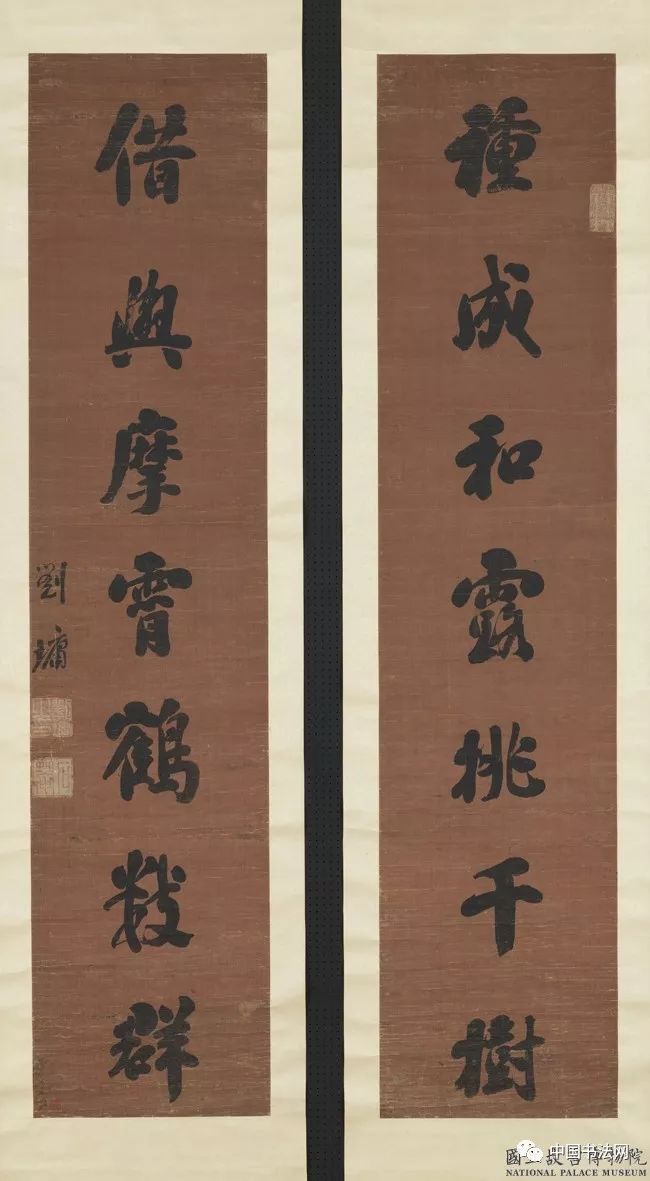 種成和露桃千樹
借與摩霄鶴數群
劉墉
中国书法网
國立故宮博物院
NATIONAL PALACE MUSEUM